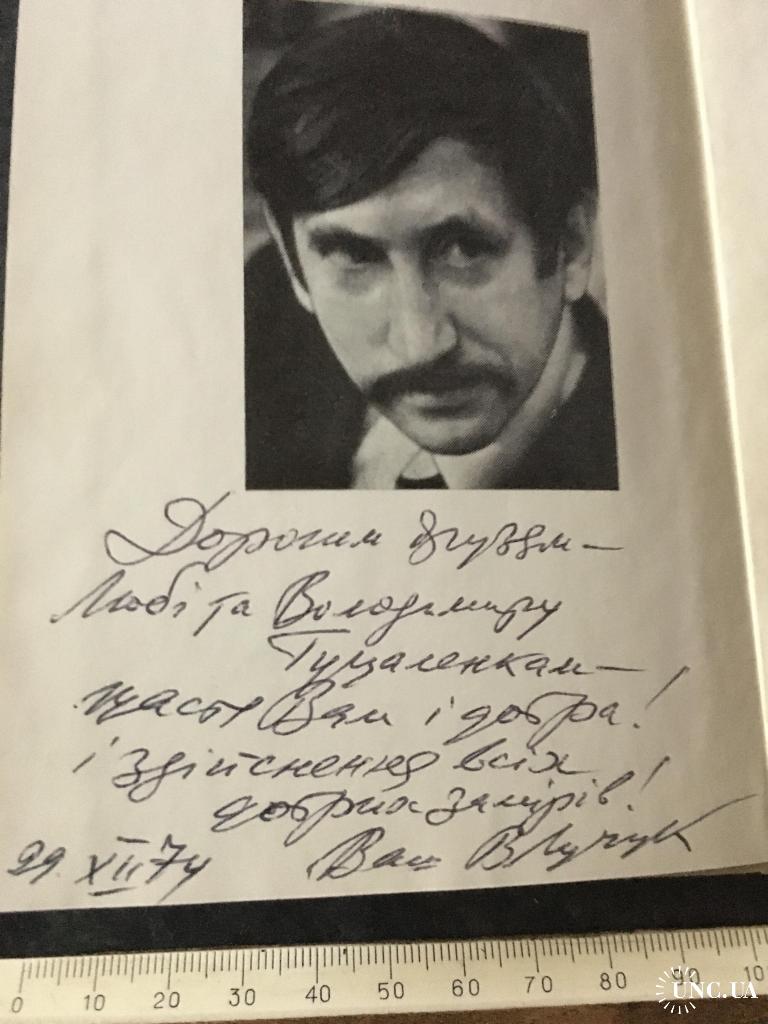 Дорогим друзям —
Любі та Володимиру
Гуцаленкам —
щастя Вам і добра!
і здійснення всіх
добрих замірів!
29. XII 74 Ваш В Лучук
0 10 20 30 40 50 60 70 80 90 10
UNC.UA